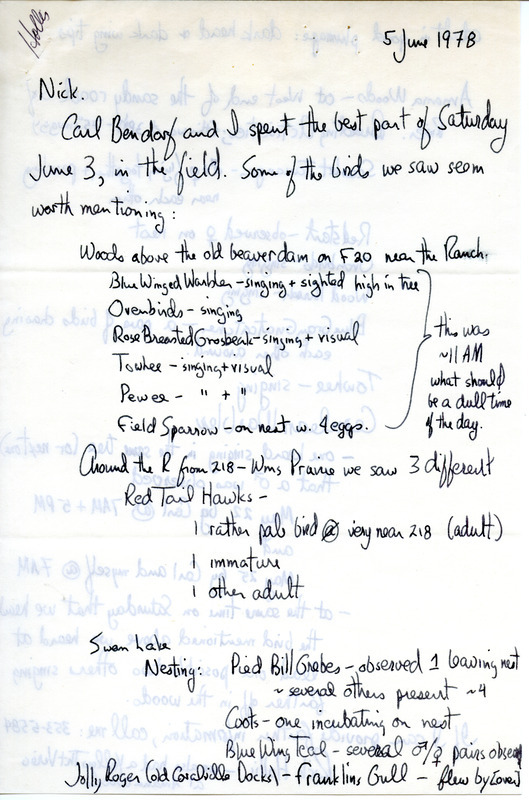 Holles
5 June 1978
Nick.
Carl Bendorf and I spent the best part of Saturday
June 3, in the field. Some of the birds we saw seem
worth mentioning:
Woods above the old beaverdam on F20 near the Ranch.
Blue Winged Warbler - singing + sighted high in tree
Ovenbirds - singing
Rose Breasted Grosbeak - singing + visual
Towhee - singing + visual
Pewee - " + "
Field Sparrow - on nest w. 4 eggs.
this was
~11 AM
what should
be a dull time
of the day.
Around the R from 218 - Wms Prairie we saw 3 different
Red Tail Hawks -
1 rather pale bird @ very near 218 (adult)
1 immature
1 other adult
Swan Lake
Nesting: Pied Bill Grebes - observed 1 leaving nest
~ several others present ~4
Coots - one incubating on nest
Blue Wing Teal - several ♂/♀ pairs observ
Jolly Roger (old Coralville Docks) - Franklins Gull - flew by [over]